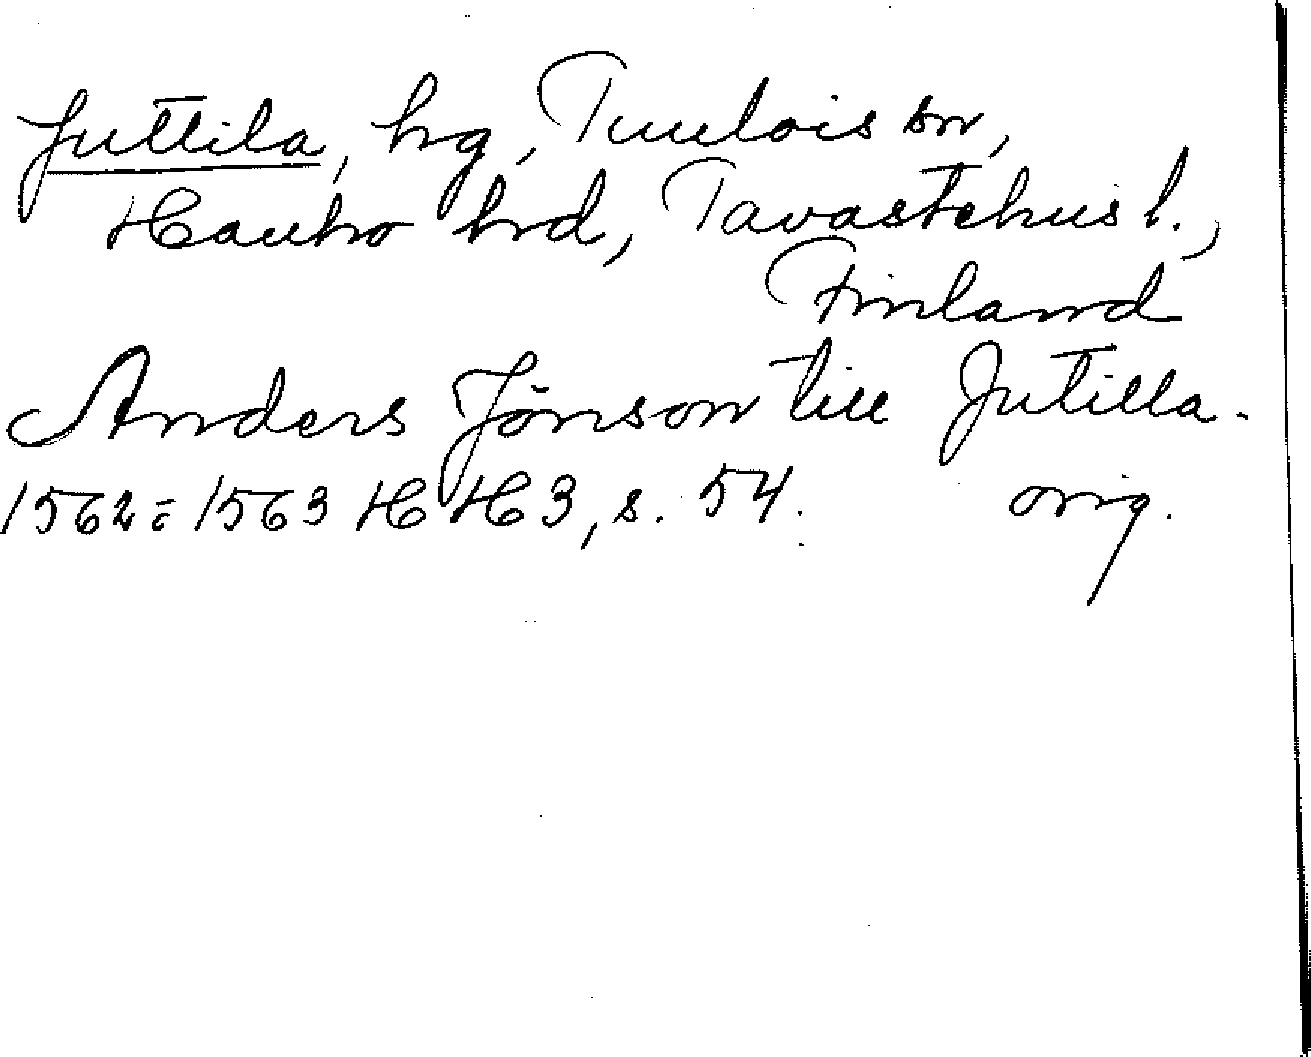 Juttila, hg, Tuulois sn,
Hauho hrd, Tavastehus l.,
Finland
Anders Jönson till Jutilla.
1562-1563 HH 3, s. 54. orig.